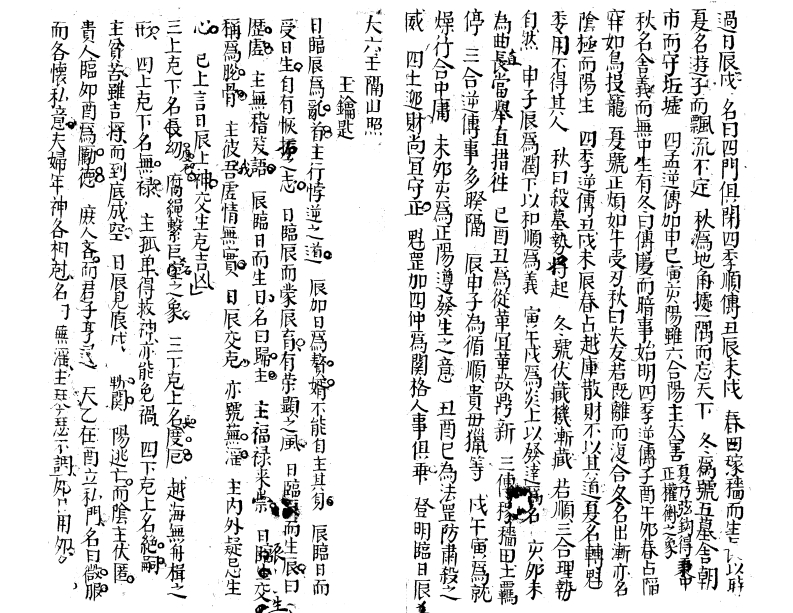 過日辰戌 名曰四門俱開四季順傳丑辰未戌 春曰稼穡而生 以時
夏名遊子而飄流不定 秋為地角據一隅而忘天下 冬為號五墓舍朝
市而守坵墟 四孟逆傳加申巳寅亥陽雖六合陽主大害 夏乃弦鈎得秉中正權衡之象
秋名舍義而無中生有冬曰傳慶而暗事始明四季逆傳子酉午卯春占陷
穽如鳥投籠 夏號正煩如牛受刃秋曰失友若既離而復合冬名出漸亦名
陰極而陽生 四季逆傳丑戌未辰春占越庫散財不以其道夏名轉魁
委用不得其人 秋曰殺墓勢將起 冬號伏藏機漸藏 若順三合理勢
自然 申子辰為潤下以和順為義 寅午戌為炎上以發達為名 亥卯未
為曲直當舉直措枉 巳酉丑為從革宜革故鼎新 三傳稼穡田土覊
停 三合逆傳事多睽隔 辰申子為循順貴毋獵等 戌午寅為就
燥行合中庸 未卯亥為正陽遵發生之意 丑酉巳為法罡防肅殺之
威 四土迎財尚宜守正 魁罡加四仲為関格人事俱乖 登明臨日辰
大六壬隔山照
王鑰匙
日臨辰為亂首主行悖逆之道 辰加日為贅婿不能自主其身 辰臨日而
受日生自有恢振之志 日臨辰而蒙辰育有榮顯之風 日臨 而生辰曰
歷虛 主無稽 語 辰臨日而生日名曰歸 主福祿来崇 日臨 交
稱為脫骨 主彼我虛情無實 日辰交克 亦號蕪淫 主內外疑忌生
心 已上言日辰上神交生克吉凶
三上克下名長幼 腐繩繫巨 之象 三下克上名度厄 越海無舟楫之
形 四上克下名無祿 主孤卑得救神亦能免禍 四下克上名絕嗣
主貧苦雖吉將而到底成空 日辰見辰戌 勒関 陽逃亡而陰主伏匿
貴人臨如酉為勵德 庶人吝而君子亨之 天乙在酉立私門名曰微服
而各懷私意夫婦年神各相剋名曰蕪淫主琴瑟不調 用卯